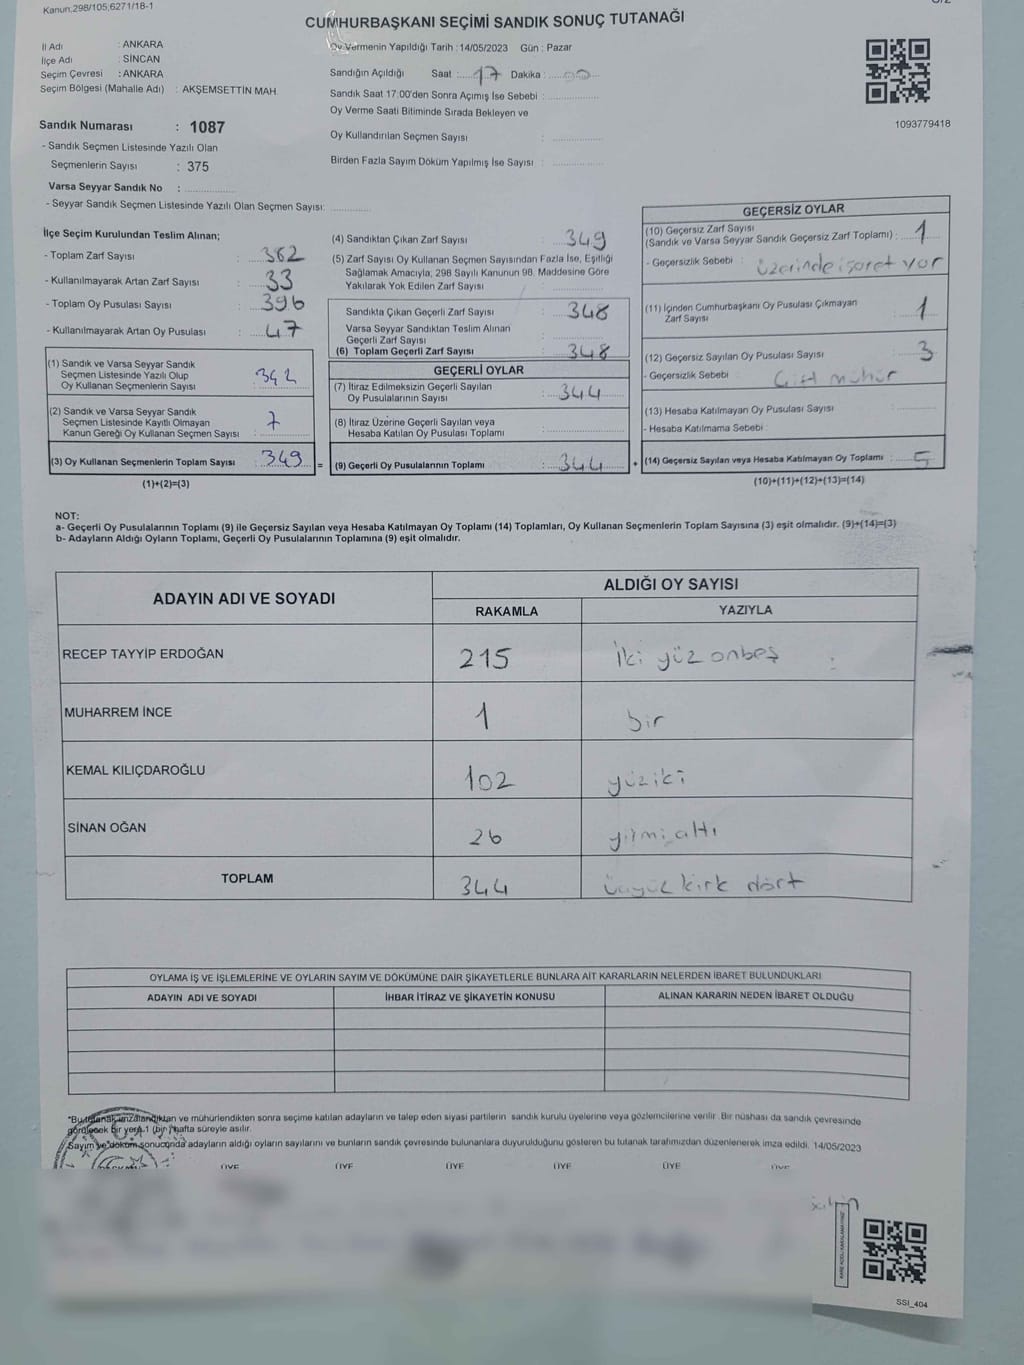 Kanun:298/105,6271/18-1
CUMHURBAŞKANI SEÇİMİ SANDIK SONUÇ TUTANAĞI
İl Adı : ANKARA
İlçe Adı : SİNCAN
Seçim Çevresi : ANKARA
Seçim Bölgesi (Mahalle Adı) : AKŞEMSETTİN MAH.
Oy Vermenin Yapıldığı Tarih : 14/05/2023 Gün : Pazar
Sandığın Açıldığı Saat : 17 Dakika : 00
Sandık Saat 17:00'den Sonra Açımış İse Sebebi :
Oy Verme Saati Bitiminde Sırada Bekleyen ve
Oy Kullandırılan Seçmen Sayısı :
Birden Fazla Sayım Döküm Yapılmış İse Sayısı :
1093779418
Sandık Numarası : 1087
- Sandık Seçmen Listesinde Yazılı Olan
Seçmenlerin Sayısı : 375
Varsa Seyyar Sandık No :
- Seyyar Sandık Seçmen Listesinde Yazılı Olan Seçmen Sayısı:
İlçe Seçim Kurulundan Teslim Alınan;
- Toplam Zarf Sayısı : 382
- Kullanılmayarak Artan Zarf Sayısı : 33
- Toplam Oy Pusulası Sayısı : 396
- Kullanılmayarak Artan Oy Pusulası : 47
(1) Sandık ve Varsa Seyyar Sandık
Seçmen Listesinde Yazılı Olup
Oy Kullanan Seçmenlerin Sayısı 342
(2) Sandık ve Varsa Seyyar Sandık
Seçmen Listesinde Kayıtlı Olmayan
Kanun Gereği Oy Kullanan Seçmen Sayısı : 7
(3) Oy Kullanan Seçmenlerin Toplam Sayısı : 349 =
(1)+(2)=(3)
(4) Sandıktan Çıkan Zarf Sayısı : 349
(5) Zarf Sayısı Oy Kullanan Seçmen Sayısından Fazla İse, Eşitliği
Sağlamak Amacıyla; 298 Sayılı Kanunun 98. Maddesine Göre
Yakılarak Yok Edilen Zarf Sayısı :
Sandıkta Çıkan Geçerli Zarf Sayısı : 348
Varsa Seyyar Sandıktan Teslim Alınan
Geçerli Zarf Sayısı :
(6) Toplam Geçerli Zarf Sayısı : 348
GEÇERLİ OYLAR
(7) İtiraz Edilmeksizin Geçerli Sayılan
Oy Pusulalarının Sayısı : 344
(8) İtiraz Üzerine Geçerli Sayılan veya
Hesaba Katılan Oy Pusulası Toplamı :
(9) Geçerli Oy Pusulalarının Toplamı : 344 +
GEÇERSİZ OYLAR
(10) Geçersiz Zarf Sayısı
(Sandık ve Varsa Seyyar Sandık Geçersiz Zarf Toplamı) : 1
- Geçersizlik Sebebi : üzerinde işaret var
(11) İçinden Cumhurbaşkanı Oy Pusulası Çıkmayan
Zarf Sayısı : 1
(12) Geçersiz Sayılan Oy Pusulası Sayısı : 3
- Geçersizlik Sebebi : Çift mühür
(13) Hesaba Katılmayan Oy Pusulası Sayısı :
- Hesaba Katılmama Sebebi :
(14) Geçersiz Sayılan veya Hesaba Katılmayan Oy Toplamı : 5
(10)+(11)+(12)+(13)=(14)
NOT:
a- Geçerli Oy Pusulalarının Toplamı (9) ile Geçersiz Sayılan veya Hesaba Katılmayan Oy Toplamı (14) Toplamları, Oy Kullanan Seçmenlerin Toplam Sayısına (3) eşit olmalıdır. (9)+(14)=(3)
b- Adayların Aldığı Oyların Toplamı, Geçerli Oy Pusulalarının Toplamına (9) eşit olmalıdır.
ADAYIN ADI VE SOYADI ALDIĞI OY SAYISI
RAKAMLA YAZIYLA
RECEP TAYYİP ERDOĞAN 215 İki yüz onbeş
MUHARREM İNCE 1 bir
KEMAL KILIÇDAROĞLU 102 yüziki
SİNAN OĞAN 26 yirmialtı
TOPLAM 344 üçyüz kirk dört
OYLAMA İŞ VE İŞLEMLERİNE VE OYLARIN SAYIM VE DÖKÜMÜNE DAİR ŞİKAYETLERLE BUNLARA AİT KARARLARIN NELERDEN İBARET BULUNDUKLARI
ADAYIN ADI VE SOYADI İHBAR İTİRAZ VE ŞİKAYETİN KONUSU ALINAN KARARIN NEDEN İBARET OLDUĞU
*Bu tutanak imzalandıktan ve mühürlendikten sonra seçime katılan adayların ve talep eden siyasi partilerin sandık kurulu üyelerine veya gözlemcilerine verilir. Bir nüshası da sandık çevresinde
görülecek bir yere 1 (bir) hafta süreyle asılır.
Sayım ve döküm sonucunda adayların aldığı oyların sayılarını ve bunların sandık çevresinde bulunanlara duyurulduğunu gösteren bu tutanak tarafımızdan düzenlenerek imza edildi. 14/05/2023
ÜYE ÜYE ÜYE ÜYE ÜYE ÜYE
SSI_404